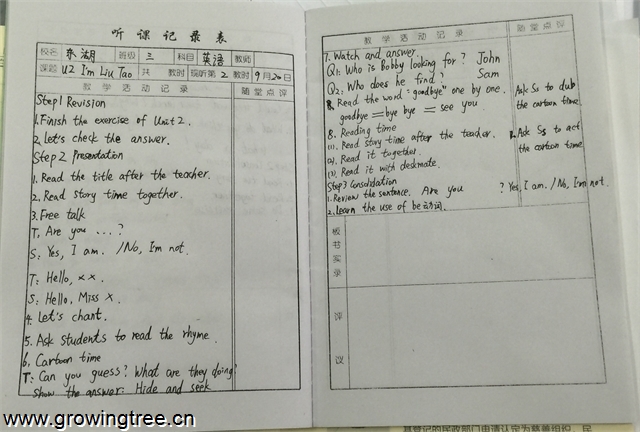 听课记录表
校名 东湖 班级 三 科目 英语 教师
课题 U2 I'm Liu Tao 共 教时 现听第 2 教时 9月20日
教学活动记录 随堂点评
Step1 Revision
1. Finish the exercise of Unit 2.
2. Let's check the answer.
Step 2 Presentation
1. Read the title after the teacher.
2. Read story time together.
3. Free talk
T: Are you ...?
S: Yes, I am. /No, I'm not.
T: Hello, ××.
S: Hello, Miss ×.
4. Let's chant.
5. Ask students to read the rhyme.
6. Cartoon time
T: Can you guess? What are they doing?
Show the answer: Hide and seek
教学活动记录 随堂点评
7. Watch and answer.
Q1: Who is Bobby looking for? John
Q2: Who does he find? Sam
8. Read the word "goodbye" one by one.
goodbye = bye bye = see you
Ask Ss to dub
the cartoon time.
8. Reading time
(1). Read story time after the teacher.
(2). Read it together.
(3). Read it with deskmate.
Ask Ss to act
the cartoon time.
Step 3 Consolidation
1. Review the sentence. Are you ? Yes, I am. / No, I'm not.
2. Learn the use of be动词.
板书实录
评议
www.growingtree.cn